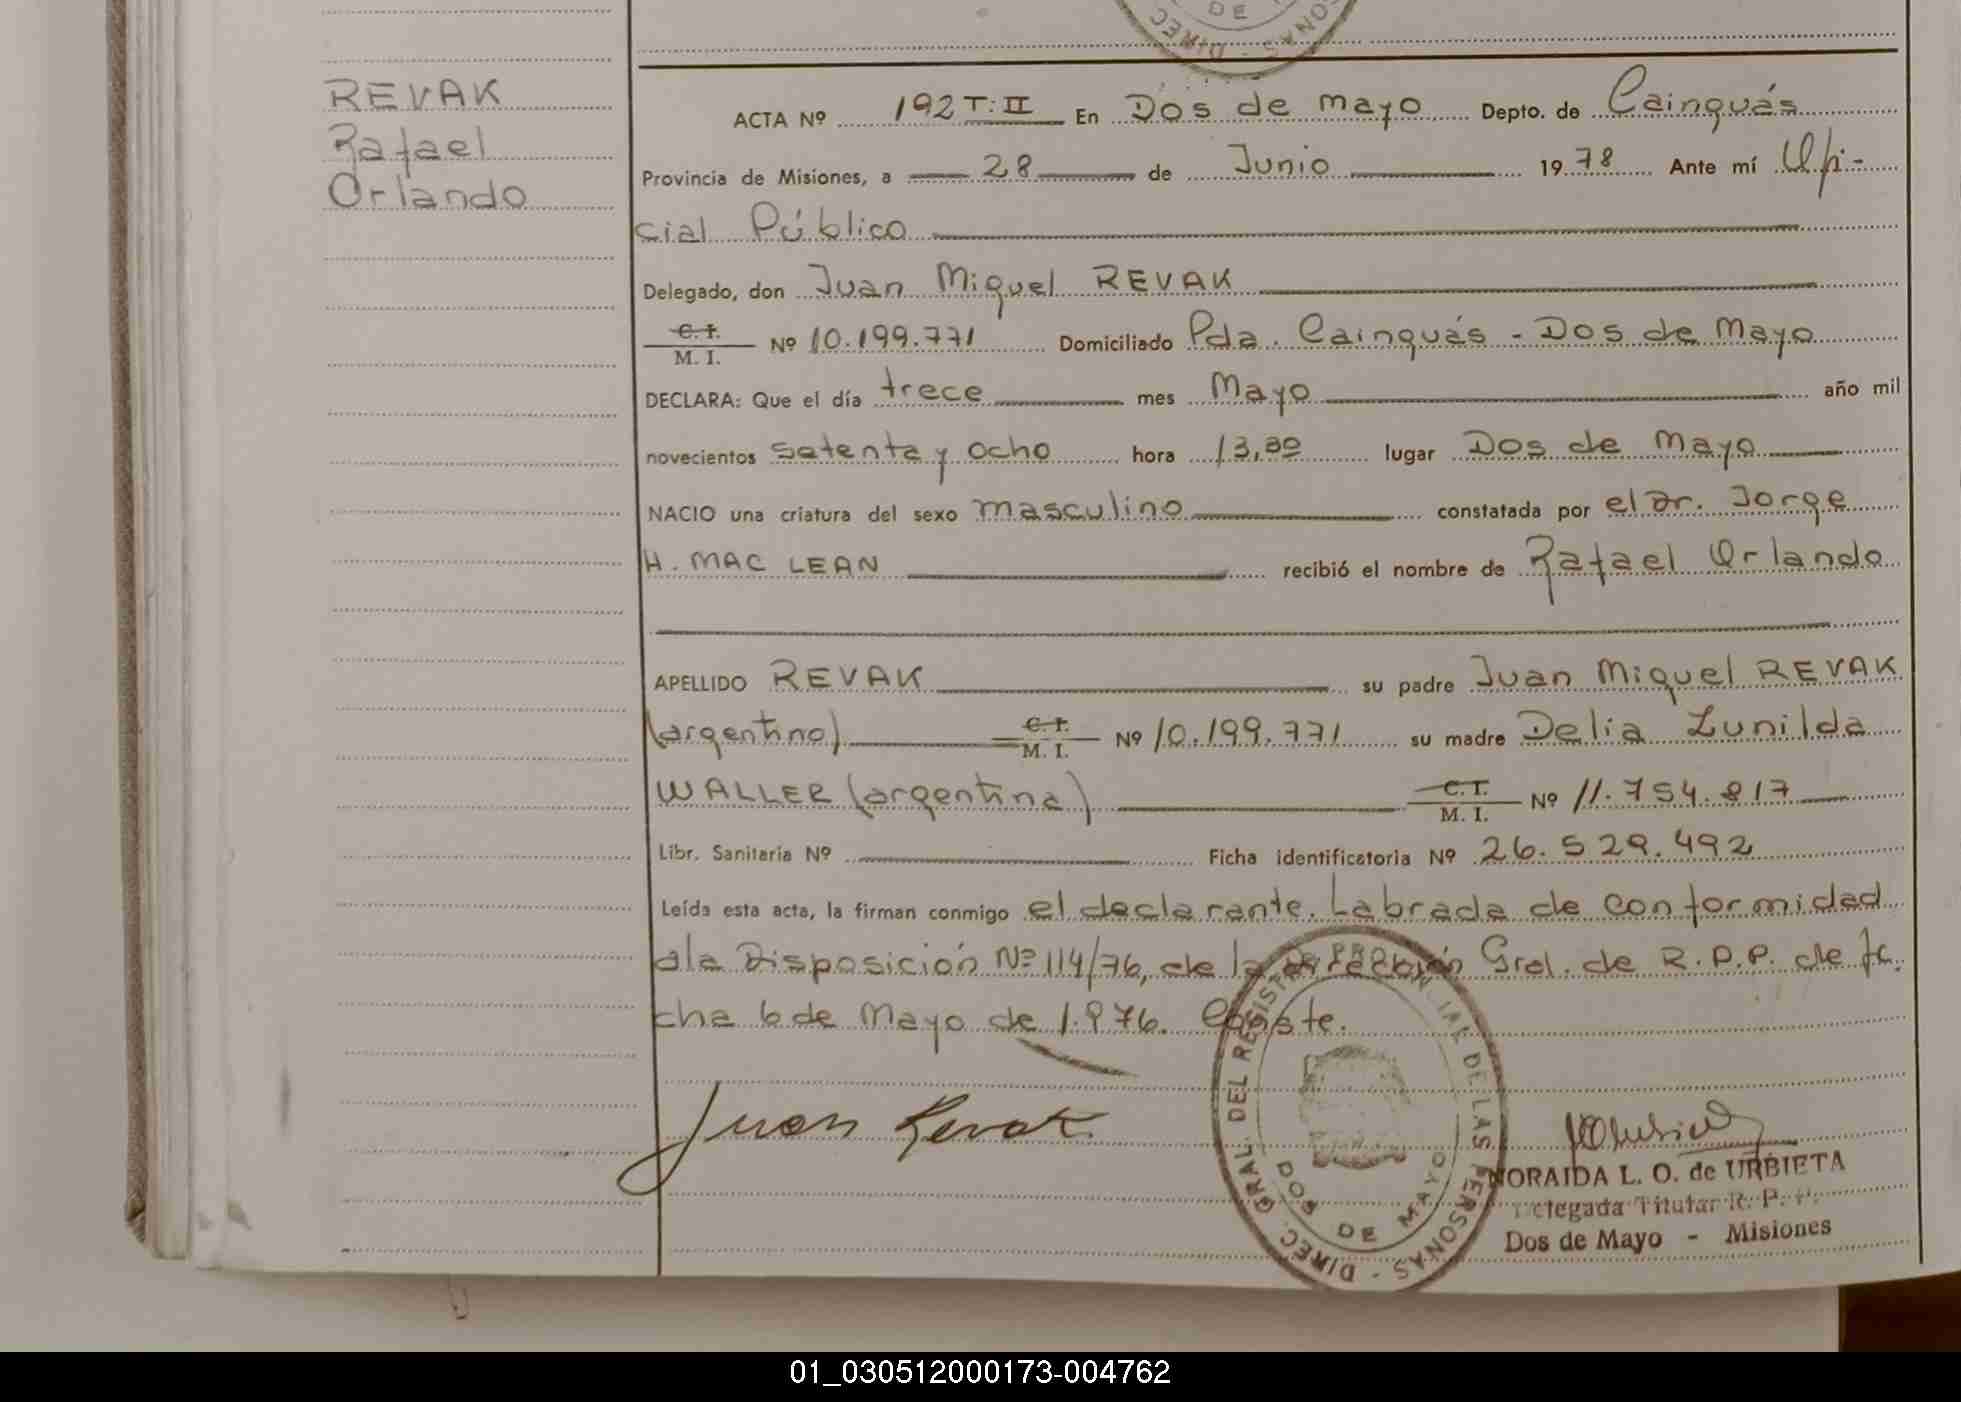 DIREC
DE
SONAS
REVAK
Rafael
Orlando
ACTA Nº 192 T: II En Dos de Mayo Depto. de Cainguás
Provincia de Misiones, a 28 de Junio 1978 Ante mí Ofi-
cial Público
Delegado, don Juan Miguel REVAK
C. I.
M. I. Nº 10.199.771 Domiciliado Pda. Cainguás - Dos de Mayo
DECLARA: Que el día trece mes Mayo año mil
novecientos setenta y ocho hora 13,30 lugar Dos de Mayo
NACIO una criatura del sexo masculino constatada por el Dr. Jorge
H. MAC LEAN recibió el nombre de Rafael Orlando
APELLIDO REVAK su padre Juan Miguel REVAK
(argentino) C. I.
M. I. Nº 10.199.771 su madre Delia Lunilda
WALLER (argentina) C. I.
M. I. Nº 11.754.817
Libr. Sanitaria Nº Ficha identificatoria Nº 26.529.492
Leída esta acta, la firman conmigo el declarante. Labrada de conformidad
a la Disposición Nº 114/76, de la Dirección Gral. de R.P.P. de fe-
cha 6 de Mayo de 1.976. Conste.
Juan Revak
DIREC. GRAL. DEL REGISTRO PROVINCIAL DE LAS PERSONAS
DOS DE MAYO
NORAIDA L. O. de URBIETA
Delegada Titular R. P. P.
Dos de Mayo - Misiones
01_030512000173-004762